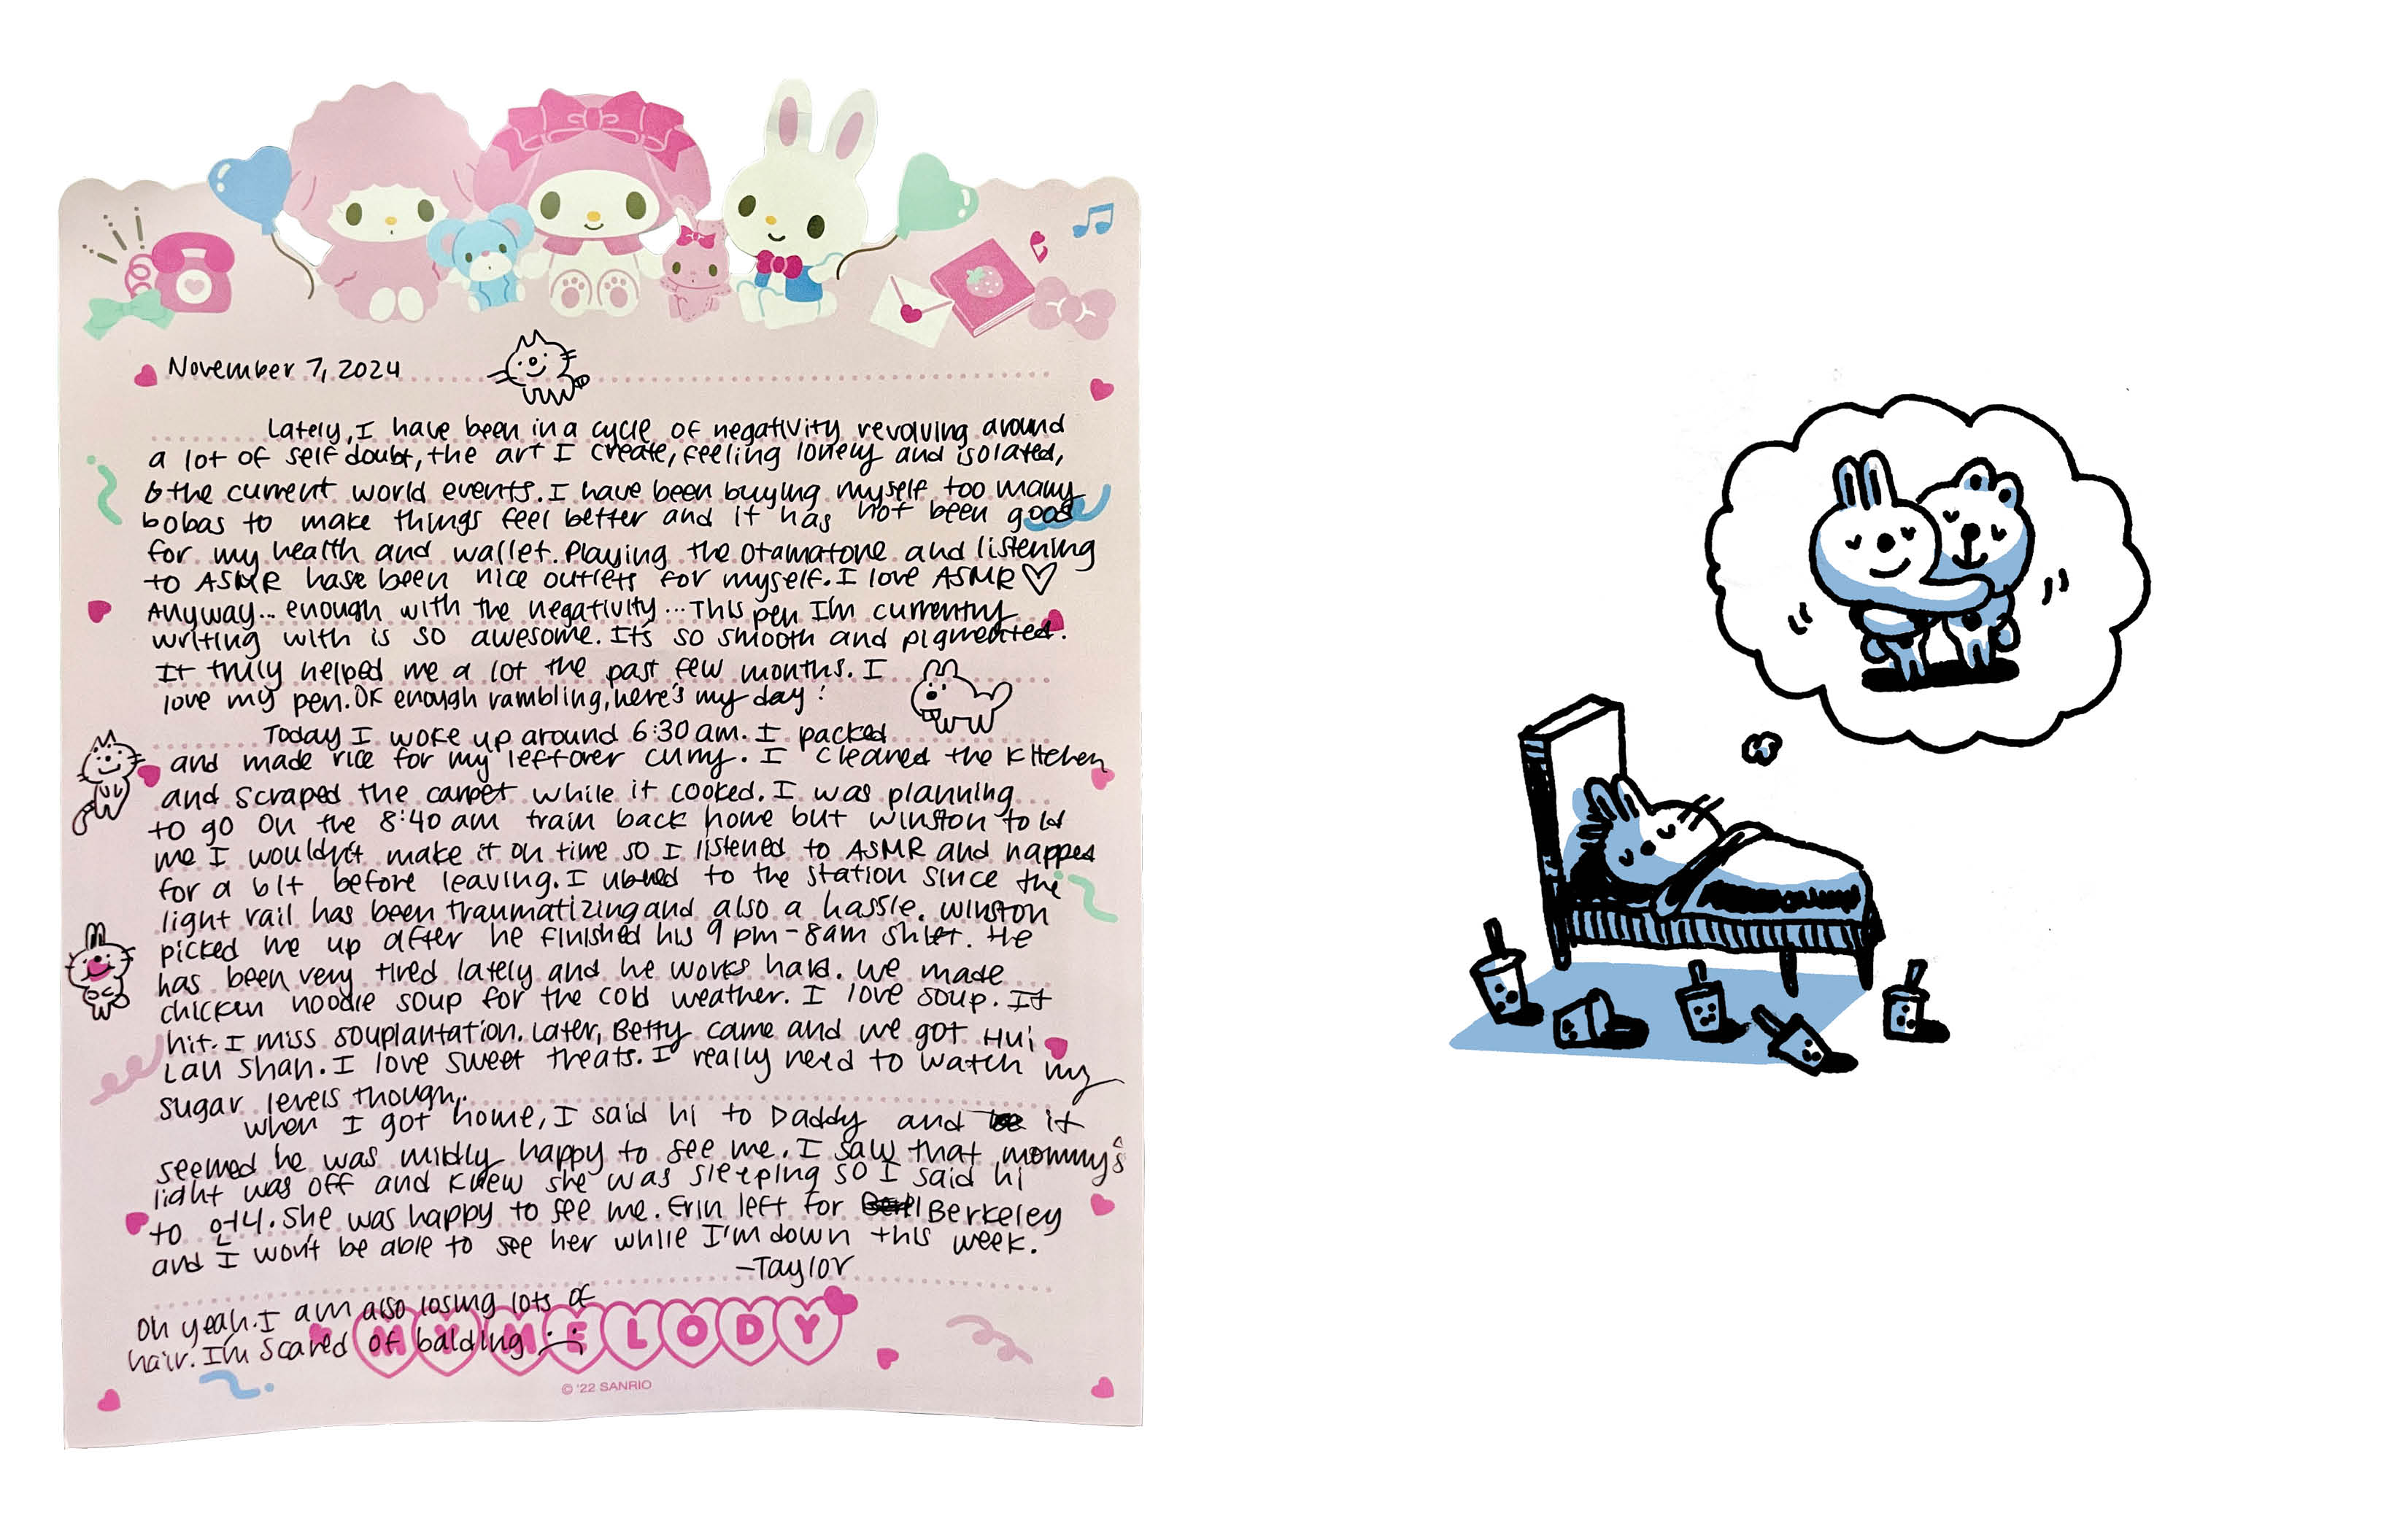 November 7, 2024
Lately, I have been in a cycle of negativity revolving around
a lot of self doubt, the art I create, feeling lonely and isolated,
& the current world events. I have been buying myself too many
bobas to make things feel better and it has not been good
for my health and wallet. Playing the Otamatone and listening
to ASMR have been nice outlets for myself. I love ASMR ♡
Anyway... enough with the negativity... This pen I'm currently
writing with is so awesome. It's so smooth and pigmented.
It truly helped me a lot the past few months. I
love my pen. OK enough rambling, here's my day:
Today I woke up around 6:30 am. I packed
and made rice for my leftover curry. I cleaned the kitchen
and scraped the carpet while it cooked. I was planning
to go on the 8:40 am train back home but Winston told
me I wouldn't make it on time so I listened to ASMR and napped
for a bit before leaving. I ubered to the station since the
light rail has been traumatizing and also a hassle. Winston
picked me up after he finished his 9 pm - 8 am shift. He
has been very tired lately and he works hard. We made
chicken noodle soup for the cold weather. I love soup. It
hit. I miss souplantation. Later, Betty came and we got Hui
Lau Shan. I love sweet treats. I really need to watch my
sugar levels though.
When I got home, I said hi to Daddy and it
seemed he was mildly happy to see me. I saw that mommy's
light was off and knew she was sleeping so I said hi
to 이나. She was happy to see me. Erin left for Berkeley
and I won't be able to see her while I'm down this week.
-Taylor
Oh yeah. I am also losing lots of
hair. I'm scared of balding :(
MY MELODY
© '22 SANRIO